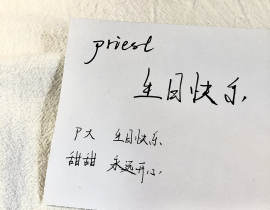 priest
生日快乐.
P大 生日快乐.
甜甜 永远开心.